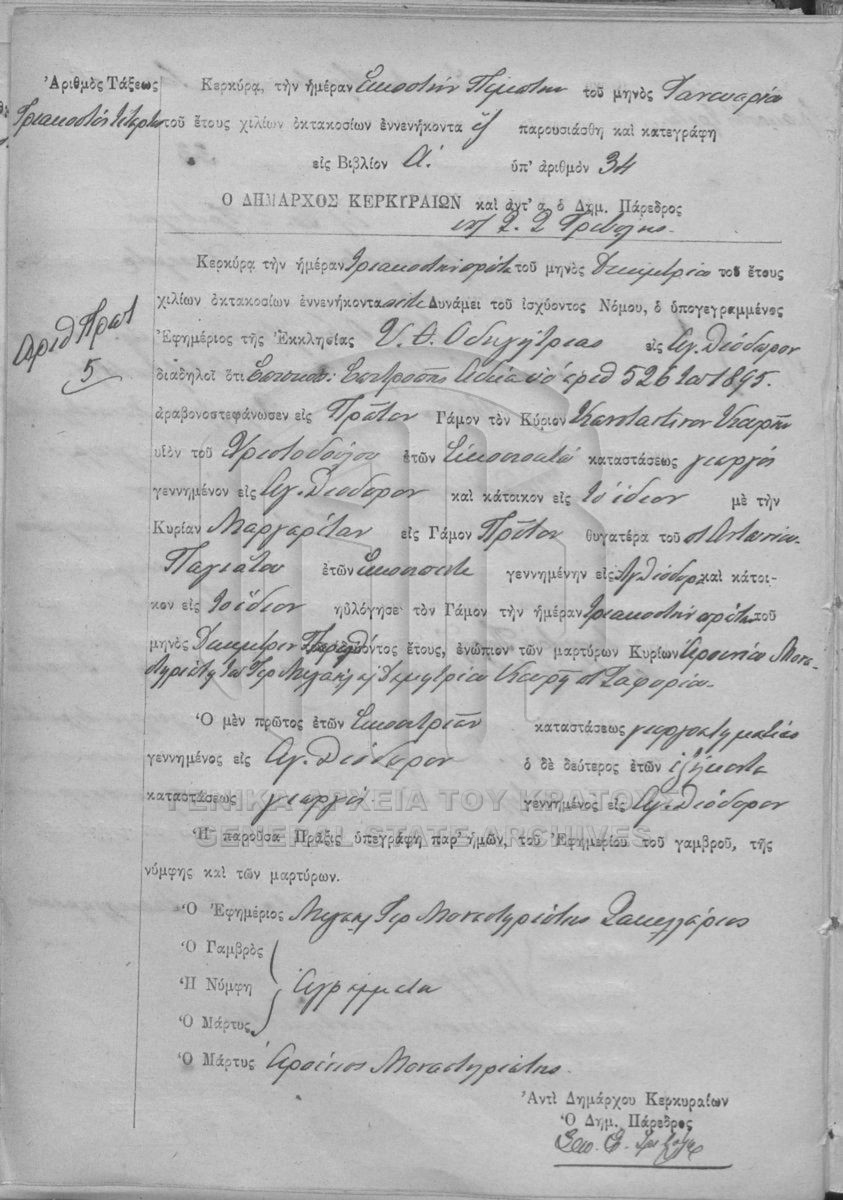 Ἀριθμὸς Τάξεως
Τριακοστὸν τέταρτον
Κερκύρα, τὴν ἡμέραν Εἰκοστὴν Πέμπτην τοῦ μηνὸς Ἰανουαρίου
τοῦ ἔτους χιλίων ὀκτακοσίων ἐννενήκοντα ἓξ παρουσιάσθη καὶ κατεγράφη
εἰς Βιβλίον Α. ὑπ' ἀριθμὸν 34
Ο ΔΗΜΑΡΧΟΣ ΚΕΡΚΥΡΑΙΩΝ καὶ ἀντ' α. ὁ Δημ. Πάρεδρος
Κερκύρα τὴν ἡμέραν τριακοστὴν πρώτην τοῦ μηνὸς Δεκεμβρίου τοῦ ἔτους
χιλίων ὀκτακοσίων ἐννενήκοντα πέντε Δυνάμει τοῦ ἰσχύοντος Νόμου, ὁ ὑπογεγραμμένος
Ἐφημέριος τῆς Ἐκκλησίας Υ. Θ. Οδηγήτριας εἰς Αγ. Θεόδωρον
Αριθ Πρωτ
5
διαδηλοῖ ὅτι Επισκοπ: Επιτροπῆς Αδεία ὑπ' αριθ 526 του 1895.
ἀραβονοστεφάνωσεν εἰς Πρῶτον Γάμον τὸν Κύριον Κωνσταντίνον
υἱὸν τοῦ Χριστοδούλου ἐτῶν Εἰκοσιοκτὼ καταστάσεως γεωργὸς
γεννημένον εἰς Αγ. Θεόδορον καὶ κάτοικον εἰς το ἴδιον μὲ τὴν
Κυρίαν Μαργαρίταν εἰς Γάμον Πρῶτον θυγατέρα τοῦ Αντωνίου
Παγιάτου ἐτῶν Εικοσιπέντε γεννημένην εἰς Αγ Θεόδορ. καὶ κάτοι-
κον εἰς το ἴδιον ηὐλόγησε τὸν Γάμον τὴν ἡμέραν τριακοστὴν πρώτην τοῦ
μηνὸς Δεκεμβρίου ἔτους, ἐνώπιον τῶν μαρτύρων Κυρίων Μονα-
στηριώτη του Ιερ Μιχαὴλ Δημητρίου
Ὁ μὲν πρῶτος ἐτῶν Εικοσιτριῶν καταστάσεως γεωργοκτηματίας
γεννημένος εἰς Αγ. Θεόδορον ὁ δὲ δεύτερος ἐτῶν ἑξήκοντα
καταστάσεως γεωργὸς γεννημένος εἰς Αγ. Θεόδορον
ΓΕΝΙΚΑ ΑΡΧΕΙΑ ΤΟΥ ΚΡΑΤΟΥΣ
GENERAL STATE ARCHIVES
Ἡ παροῦσα Πρᾶξις ὑπεγράφη παρ' ἡμῶν, τοῦ Ἐφημερίου τοῦ γαμβροῦ, τῆς
νύμφης καὶ τῶν μαρτύρων.
Ὁ Ἐφημέριος Μιχαὴλ Ιερ Μοναστηριώτης Σακελλάριος
Ὁ Γαμβρὸς
Ἡ Νύμφη Αγράμματοι
Ὁ Μάρτυς
Ὁ Μάρτυς Μοναστηριώτης
Ἀντὶ Δημάρχου Κερκυραίων
Ὁ Δημ. Πάρεδρος